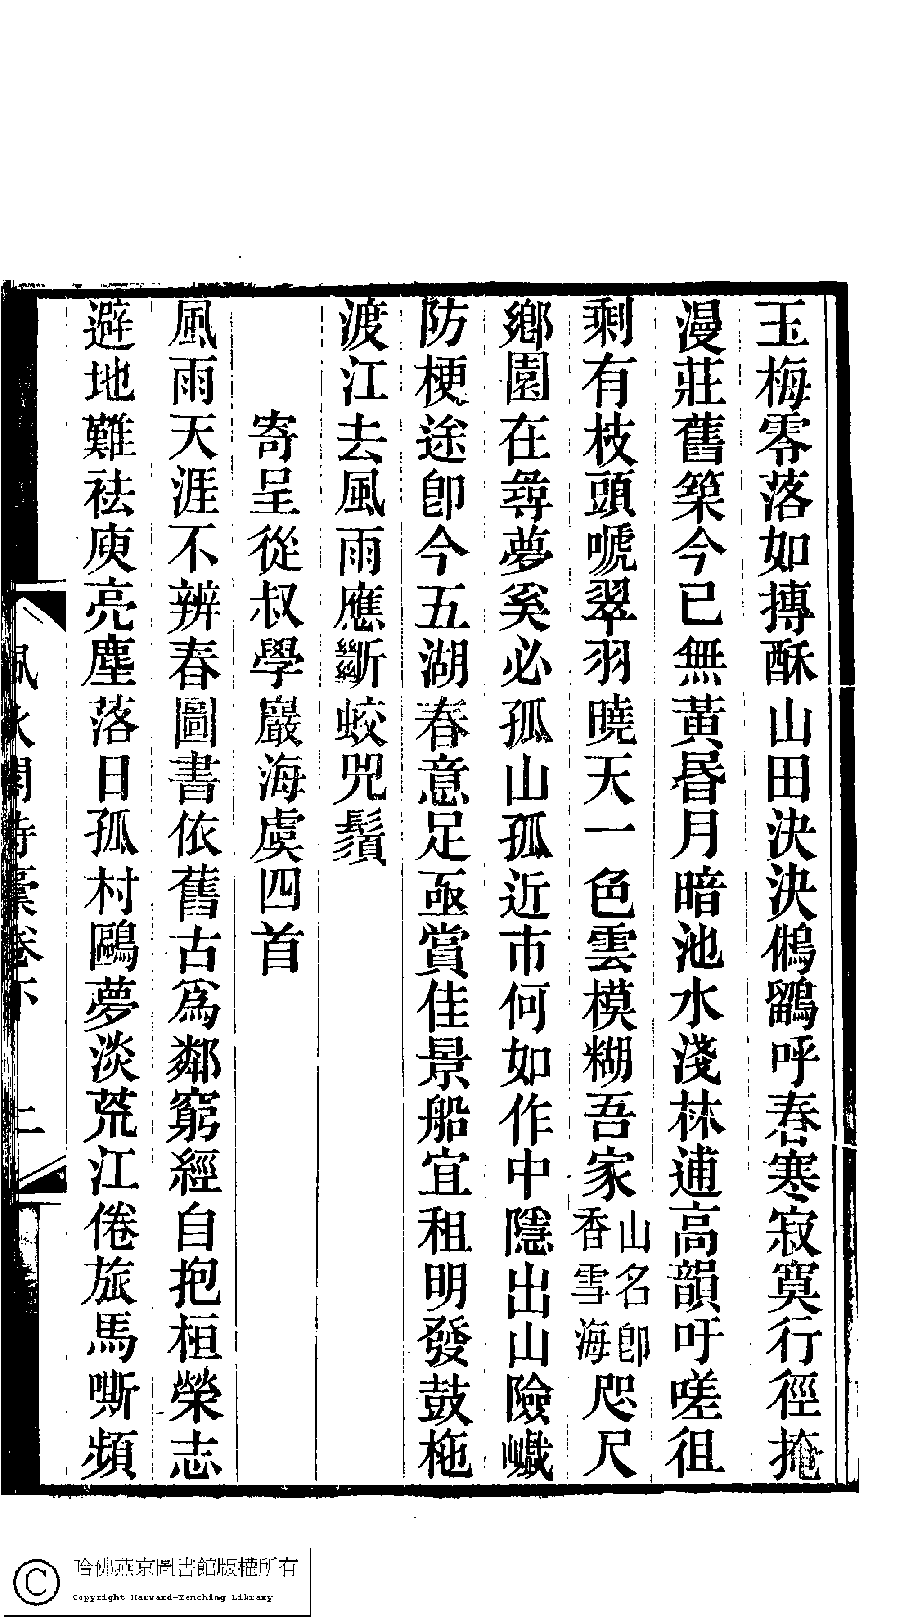 玉梅零落如摶酥山田決決鵂鶹呼春寒寂寞行徑掩
漫莊舊築今已無黃昬月暗池水淺林逋高韻吁嗟徂
剩有枝頭嗁翠羽曉天一色雲模糊吾家山名卽香雪海咫尺
鄉園在尋夢奚必孤山孤近市何如作中隱出山險巇
防梗途卽今五湖春意足亟賞佳景船宜租明發鼓柂
渡江去風雨應斷蛟兕鬚
寄呈從叔學巖海虞四首
風雨天涯不辨春圖書依舊古爲鄰窮經自抱桓榮志
避地難袪庾亮塵落日孤村鷗夢淡荒江倦旅馬嘶頻
閒詩稾卷下
二
哈佛燕京圖書館版權所有
Copyright Harvard-Yenching Library